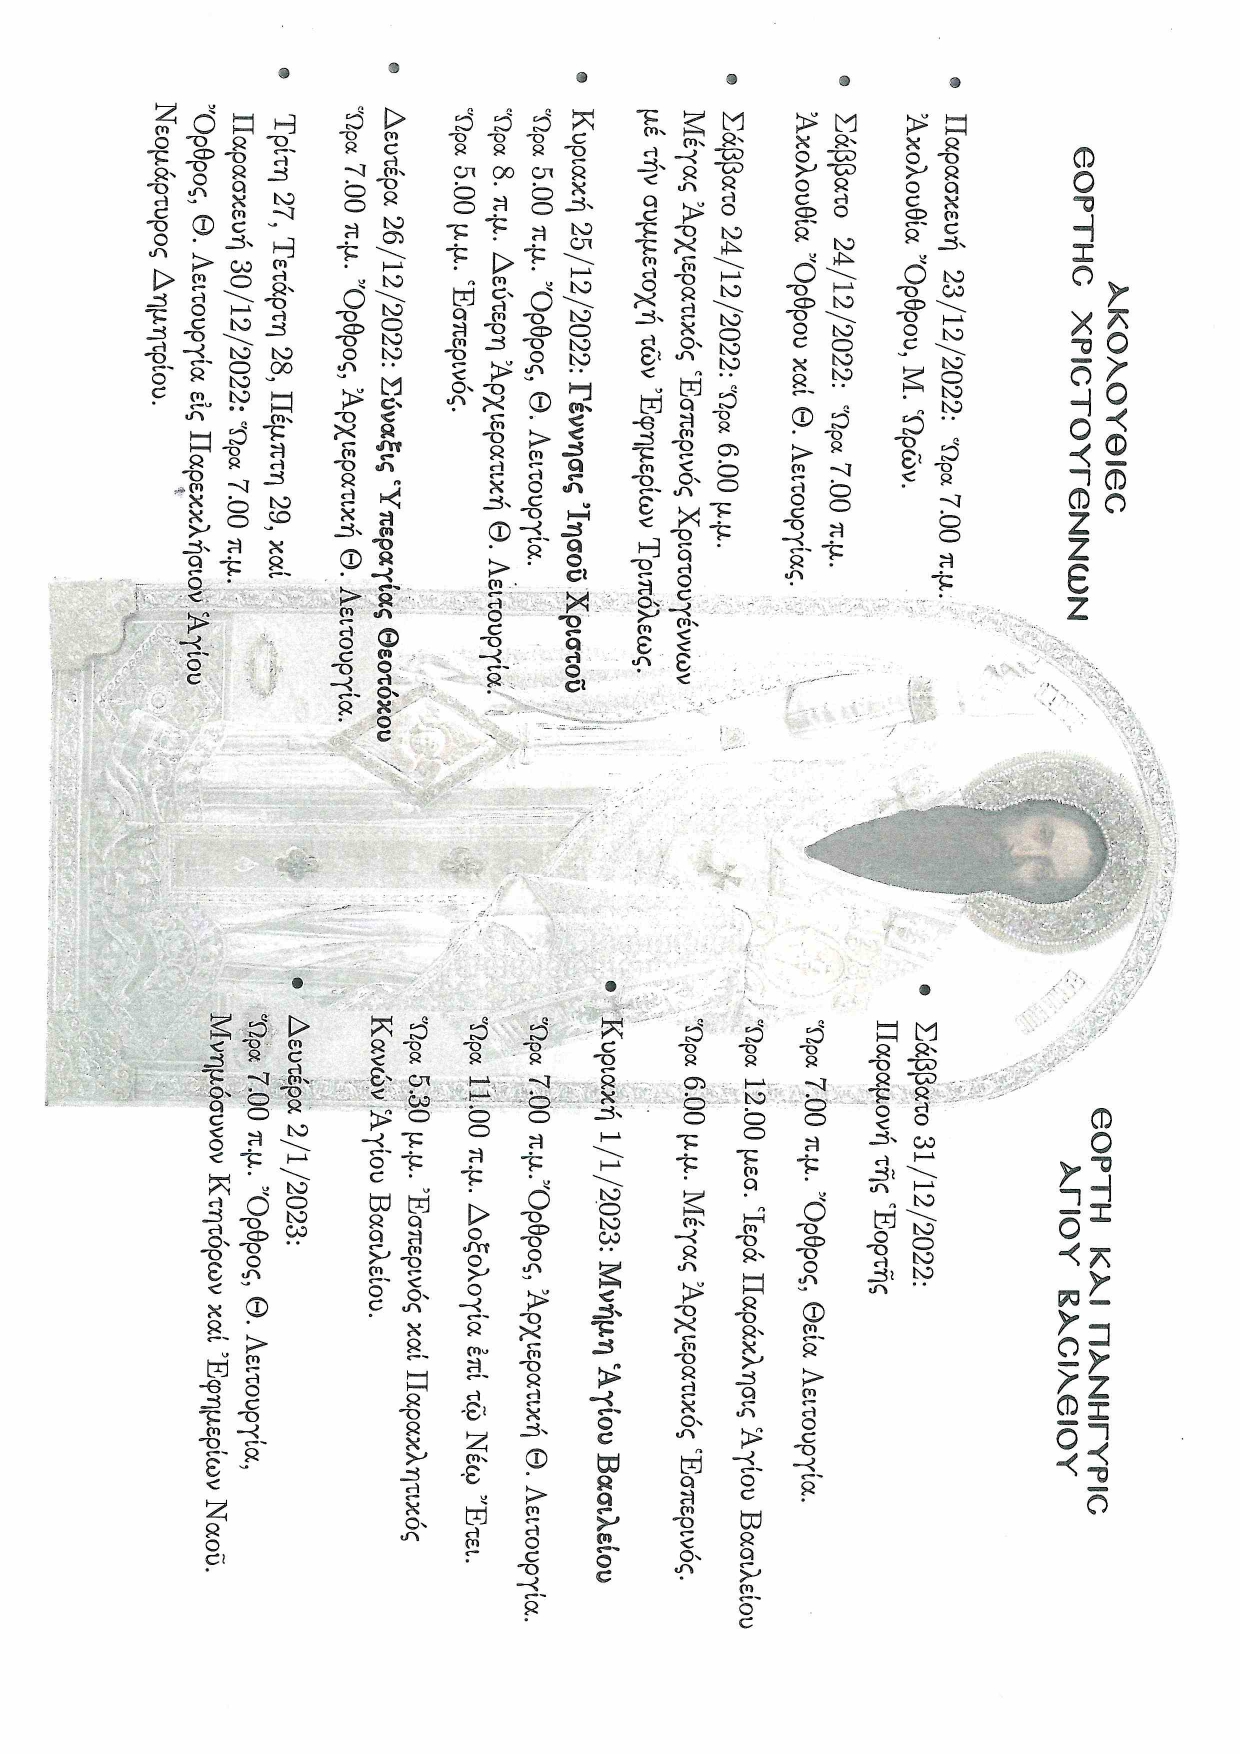 ΑΚΟΛΟΥΘΙΕΣ
ΕΟΡΤΗΣ ΧΡΙΣΤΟΥΓΕΝΝΩΝ
• Παρασκευή 23/12/2022: Ὥρα 7.00 π.μ.
Ἀκολουθία Ὄρθρου, Μ. Ὡρῶν.
• Σάββατο 24/12/2022: Ὥρα 7.00 π.μ.
Ἀκολουθία Ὄρθρου καί Θ. Λειτουργίας.
• Σάββατο 24/12/2022: Ὥρα 6.00 μ.μ.
Μέγας Ἀρχιερατικός Ἑσπερινός Χριστουγέννων
μέ τήν συμμετοχή τῶν Ἐφημερίων Τριπόλεως.
• Κυριακή 25/12/2022: Γέννησις Ἰησοῦ Χριστοῦ
Ὥρα 5.00 π.μ. Ὄρθρος, Θ. Λειτουργία.
Ὥρα 8. π.μ. Δεύτερη Ἀρχιερατική Θ. Λειτουργία.
Ὥρα 5.00 μ.μ. Ἑσπερινός.
• Δευτέρα 26/12/2022: Σύναξις Ὑπεραγίας Θεοτόκου
Ὥρα 7.00 π.μ. Ὄρθρος, Ἀρχιερατική Θ. Λειτουργία.
• Τρίτη 27, Τετάρτη 28, Πέμπτη 29, καί
Παρασκευή 30/12/2022: Ὥρα 7.00 π.μ.
Ὄρθρος, Θ. Λειτουργία εἰς Παρεκκλήσιον Ἁγίου
Νεομάρτυρος Δημητρίου.
ΕΟΡΤΗ ΚΑΙ ΠΑΝΗΓΥΡΙΣ
ΑΓΙΟΥ ΒΑΣΙΛΕΙΟΥ
• Σάββατο 31/12/2022:
Παραμονή τῆς Ἑορτῆς
Ὥρα 7.00 π.μ. Ὄρθρος, Θεία Λειτουργία.
Ὥρα 12.00 μεσ. Ἱερά Παράκλησις Ἁγίου Βασιλείου
Ὥρα 6.00 μ.μ. Μέγας Ἀρχιερατικός Ἑσπερινός.
• Κυριακή 1/1/2023: Μνήμη Ἁγίου Βασιλείου
Ὥρα 7.00 π.μ. Ὄρθρος, Ἀρχιερατική Θ. Λειτουργία.
Ὥρα 11.00 π.μ. Δοξολογία ἐπί τῷ Νέῳ Ἔτει.
Ὥρα 5.30 μ.μ. Ἑσπερινός καί Παρακλητικός
Κανών Ἁγίου Βασιλείου.
• Δευτέρα 2/1/2023:
Ὥρα 7.00 π.μ. Ὄρθρος, Θ. Λειτουργία,
Μνημόσυνον Κτητόρων καί Ἐφημερίων Ναοῦ.